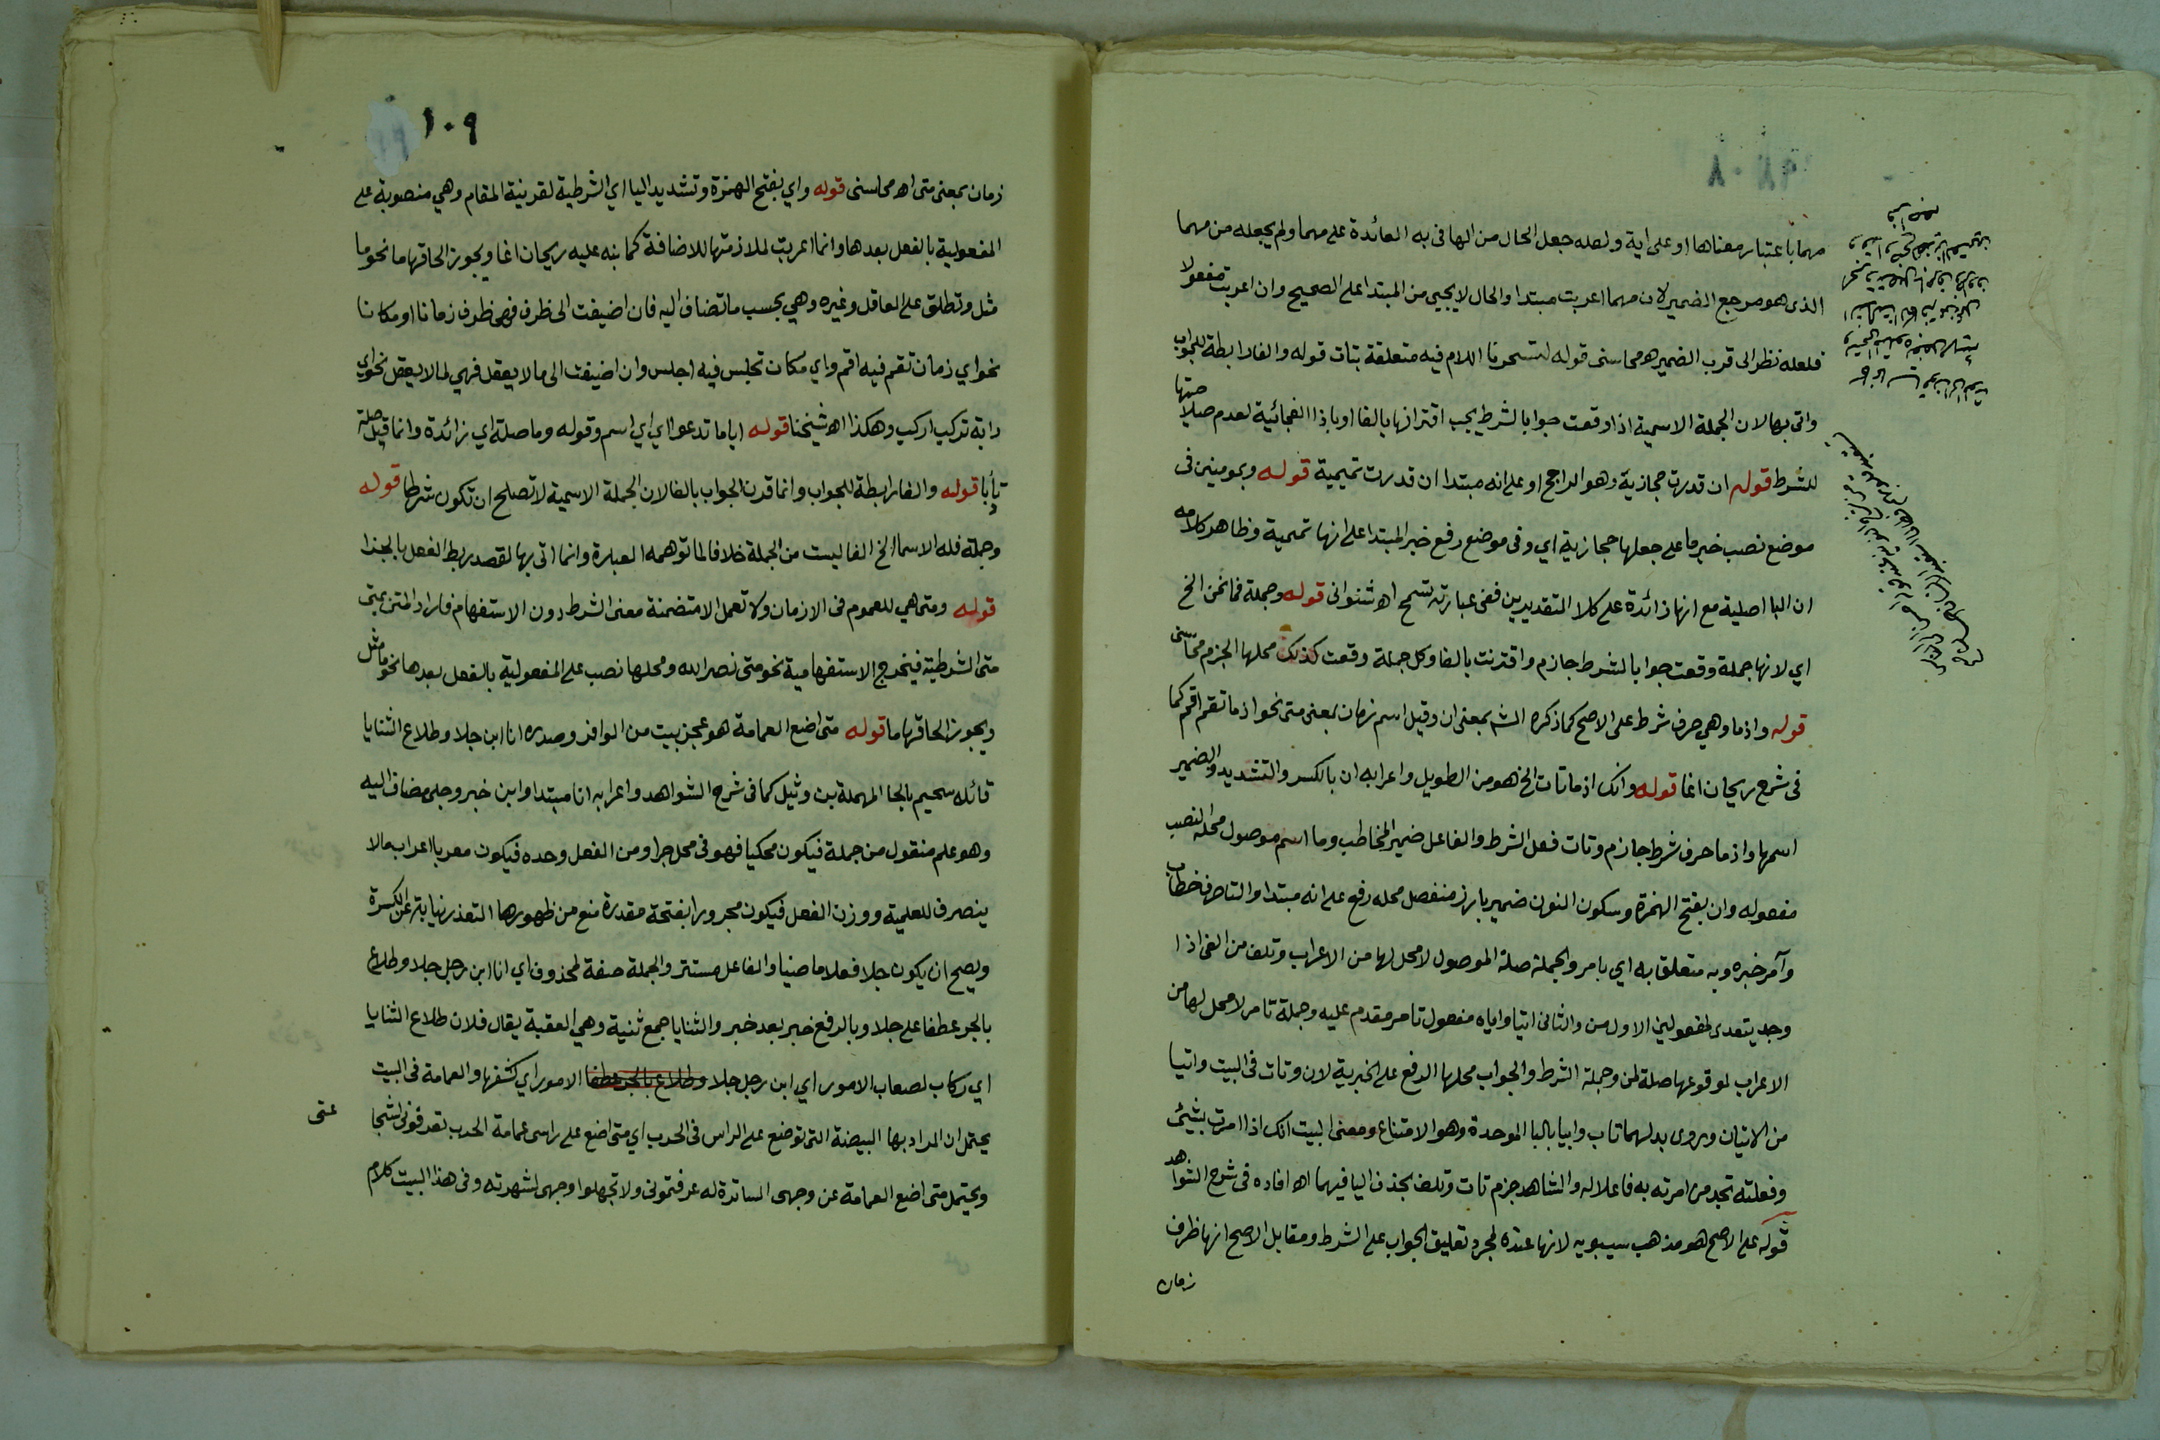 ١٠٨
مهما باعتبار معناها او على اية ولعله جعل الحال من الها في به العائدة على مهما ولم يجعله من مهما
الذى هو مرجع الضمير لان مهما اعربت مبتدا والحال لا يجيي من المبتدا على الصحيح وان اعربت مفعولا
فلعله نظر الى قرب الضمير اه محاسنى قوله لتسحرنا اللام فيه متعلقة بتات قوله والفا رابطة للجواب
واتى بها لان الجملة الاسمية اذا وقعت جوابا لشرط يجب اقترانها بالفا او باذا الفجائية لعدم صلاحيتها
للشرط قوله ان قدرت حجازية وهو الراجح او على انه مبتدا ان قدرت تميمية قوله وبمومنين فى
موضع نصب خبر ما على جعلها حجازية اي وفى موضع رفع خبر المبتدا على انها تميمية وظاهر كلامه
ان البا اصلية مع انها زائدة على كلا التقديرين ففى عبارته تسمح اه شنوانى قوله وجملة فما نحن الخ
اي لانها جملة وقعت جوابا لشرط جازم واقترنت بالفا وكل جملة وقعت كذلك محلها الجزم محاسنى
قوله واذما وهي حرف شرط على الاصح كما ذكره الش بمعنى ان وقيل اسم زمان بمعنى متى نحو اذما تقم اقم كما
فى شرح ريحان اغا قوله وانك اذما تات الخ هو من الطويل واعرابه ان بالكسر والتشديد والضمير
اسمها واذما حرف شرط جازم وتات فعل الشرط والفاعل ضمير المخاطب وما اسم موصول محله النصب
مفعوله وان بفتح الهمزة وسكون النون ضمير بارز منفصل محله رفع على انه مبتدا والتا حرف خطاب
وآمر خبره وبه متعلق به اي بامر والجملة صلة الموصول لا محل لها من الاعراب وتلف من الفى اذا
وجد يتعدى لمفعولين الاول من والثانى اتيا واياه مفعول تامر مقدم عليه وجملة تامر لا محل لها من
الاعراب لوقوعها صلة لمن وجملة الشرط والجواب محلها الرفع على الخبرية لان وتات فى البيت واتيا
من الاتيان ويروى بدلهما تاب وابيا بالبا الموحدة وهو الامتناع ومعنى البيت انك اذا امرت بشيئ
وفعلته تجد من امرته به فاعلا له والشاهد جزم تات وتلف بحذف اليا فيهما اه افاده فى شرح الشواهد
قوله على الاصح هو مذهب سيبويه لانها عنده لمجرد تعليق الجواب على الشرط ومقابل الاصح انها ظرف
زمان
١٠٩
زمان بمعنى متى اه محاسنى قوله واي بفتح الهمزة وتشديد اليا اي الشرطية لقرينة المقام وهي منصوبة على
المفعولية بالفعل بعدها وانما اعربت لملازمتها للاضافة كما نبه عليه ريحان اغا ويجوز الحاقها ما نحو ما
مثل وتطلق على العاقل وغيره وهي بحسب ما تضاف اليه فان اضيفت الى ظرف فهى ظرف زمانا او مكانا
نحو اي زمان تقم فيه اقم واي مكان تجلس فيه اجلس وان اضيفت الى ما لا يعقل فهي لما لا يعقل نحو اي
دابة تركب اركب وهكذا اه شيخنا قوله اياما تدعوا اي اي اسم وقوله وما صلة اي زائدة وانما قيل صلة
تأدبا قوله والفا رابطة للجواب وانما قرن الجواب بالفا لان الجملة الاسمية لا تصلح ان تكون شرطا قوله
وجملة فله الاسما الخ الفا ليست من الجملة خلافا لما توهمه العبارة وانما اتى بها لقصد ربط الفعل بالجزا
قوله ومتى هي للعموم فى الازمان ولا تعمل الا متضمنة معنى الشرط دون الاستفهام فاراد المتن بمتى
متى الشرطية فيخرج الاستفهامية نحو متى نصر الله ومحلها نصب على المفعولية بالفعل بعدها نحو ما مثل
ويجوز الحاقها ما قوله متى اضع العمامة هو عجز بيت من الوافر وصدره انا ابن جلا وطلاع الثنايا
قائله سحيم بالحا المهملة بن وثيل كما فى شرح الشواهد واعرابه انا مبتدا وابن خبر وجلى مضاف اليه
وهو علم منقول من جملة فيكون محكيا فهو فى محل جر او من الفعل وحده فيكون معربا اعراب ما لا
ينصرف للعلمية ووزن الفعل فيكون مجرورا بفتحة مقدرة منع من ظهورها التعذر نيابة عن الكسرة
ويصح ان يكون جلا فعلا ماضيا والفاعل مستتر والجملة صفة لمحذوف اي انا ابن رجل جلا وطلاع
بالجر عطفا على جلا وبالرفع خبر بعد خبر والثنايا جمع ثنية وهي العقبة يقال فلان طلاع الثنايا
اي ركاب لصعاب الامور اي ابن رجل جلا وطلاع بالجر عطفا الامور اي كشفها والعمامة فى البيت
يحتمل ان المراد بها البيضة التى توضع على الراس فى الحرب اي متى اضع على راسى عمامة الحرب تعرفونى شجا
ويحتمل متى اضع العمامة عن وجهى الساترة له عرفتمونى ولا تجهلوا وجهى لشهرته وفى هذا البيت كلام